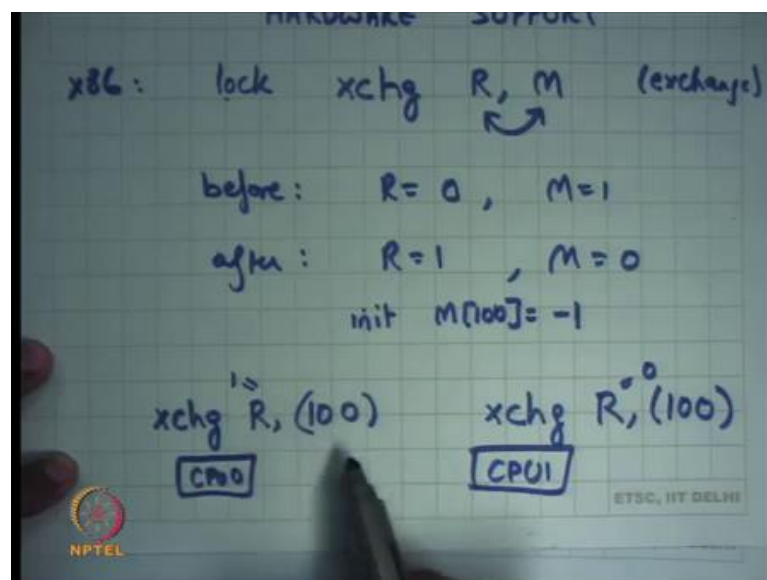 HARDWARE SUPPORT
x86: lock xchg R, M (exchange)
before: R = 0, M = 1
after: R = 1, M = 0
init M[100] = -1
1= =0
xchg R, (100) xchg R, (100)
CPU0 CPU1
ETSC, IIT DELHI
NPTEL